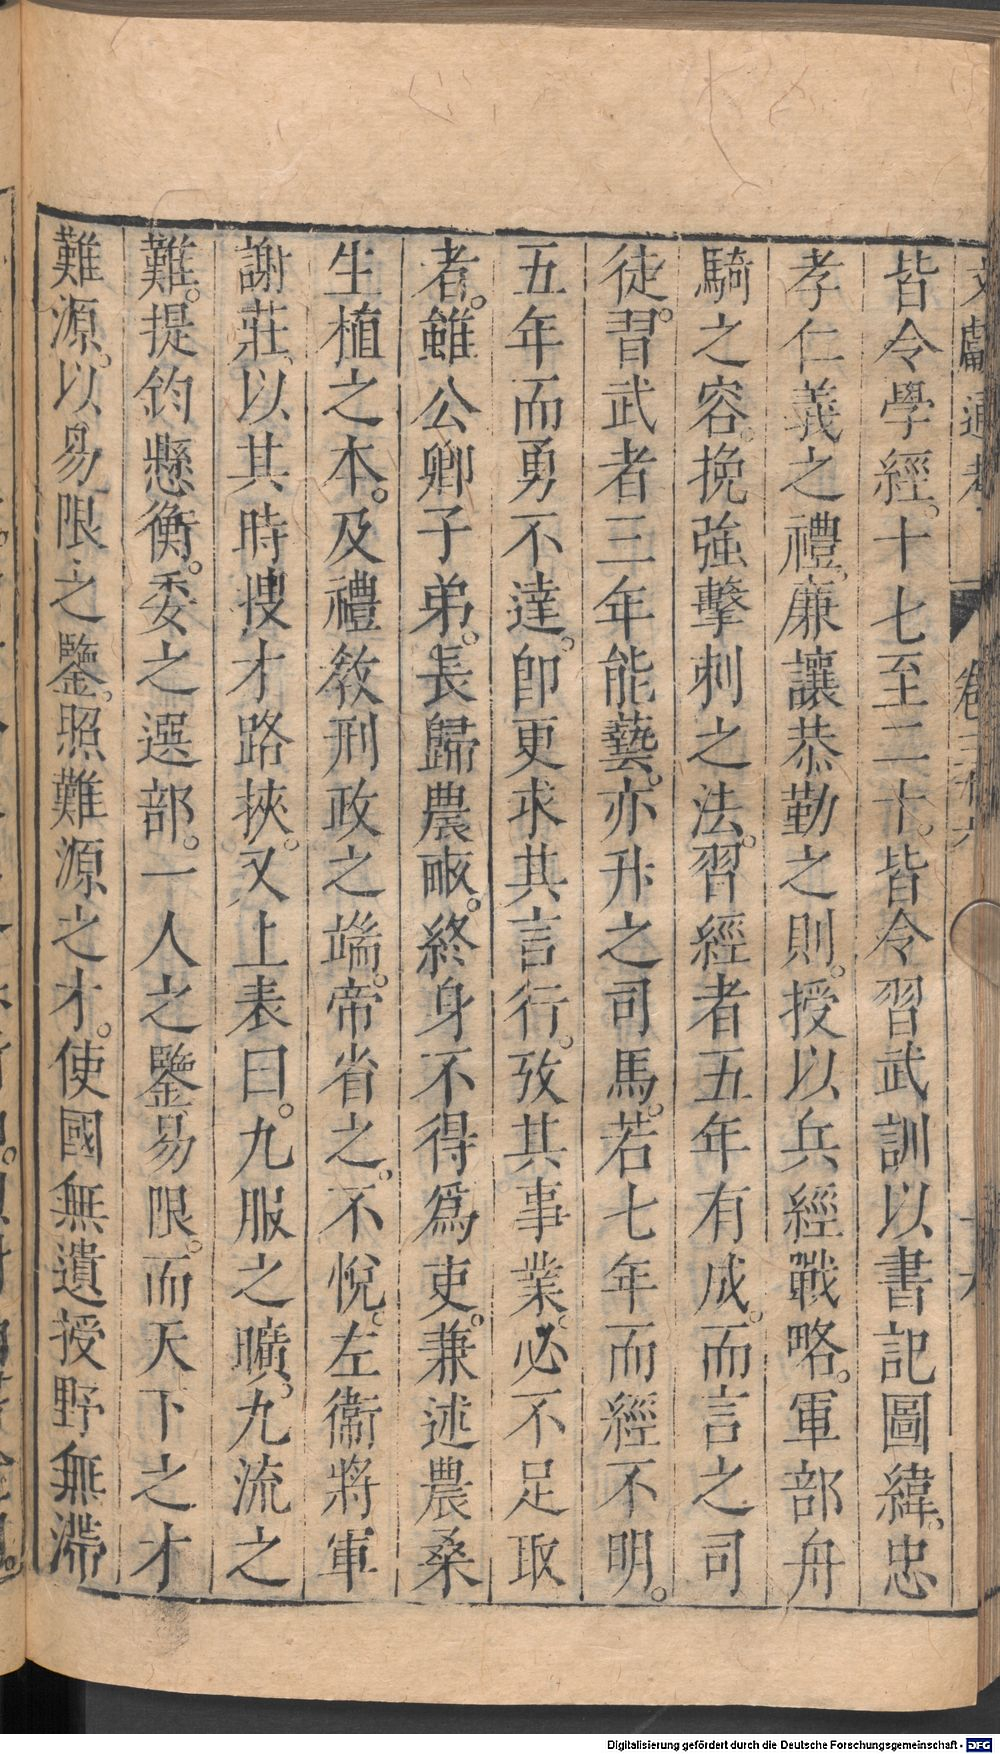 文獻通考 卷三
皆令學經。十七至二十。皆令習武訓以書記圖緯。忠
孝仁義之禮。廉讓恭勤之則。授以兵經戰略。軍部舟
騎之容。挽強擊刺之法。習經者五年有成。而言之司
徒。習武者三年能藝。亦升之司馬。若七年而經不明。
五年而勇不達。即更求其言行。攷其事業。必不足取
者。雖公卿子弟。長歸農畝。終身不得爲吏。兼述農桑
生植之本。及禮敎刑政之端。帝省之。不悅。左衞將軍
謝莊、以其時搜才路挾。又上表曰。九服之曠。九流之
難。提鈞懸衡。委之選部。一人之鑒易限。而天下之才
難源。以易限之鑒。照難源之才。使國無遺授野無滯
Digitalisierung gefördert durch die Deutsche Forschungsgemeinschaft - DFG